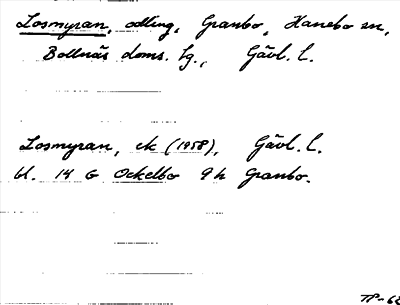 Losmyran, odling, Granbo, Hanebo sn,
Bollnäs doms. tg., Gävl. l.
Losmyran, ek (1958), Gävl. l.
bl. 14 G Ockelbo 9 h Granbo.
TP-66